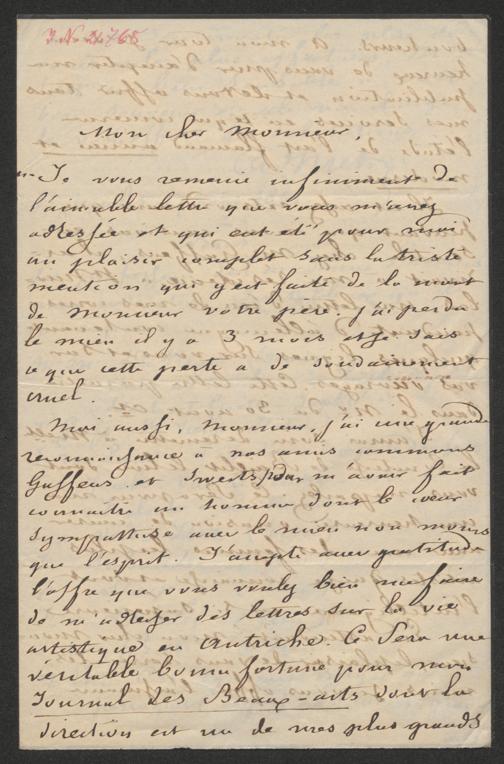 I. N. 24765
Mon cher Monsieur,
Je vous remercie infiniment de
l'aimable lettre que vous m'avez
adressée et qui eut été pour moi
un plaisir complet sans la triste
mention qui y est faite de la mort
de Monsieur votre père. J'ai perdu
le mien il y a 3 mois et je sais
ce que cette perte a de soudainement
cruel.
Moi aussi, Monsieur, j'ai une grande
reconnaissance à nos amis communs
Guffens et Swerts pour m'avoir fait
connaître un homme dont le cœur
sympathise avec le mien non moins
que l'esprit. J'accepte avec gratitude
l'offre que vous voulez bien me faire
de m'adresser des lettres sur la vie
artistique en Autriche. Ce sera une
véritable bonne fortune pour mon
Journal des Beaux-arts dont la
direction est un de mes plus grands